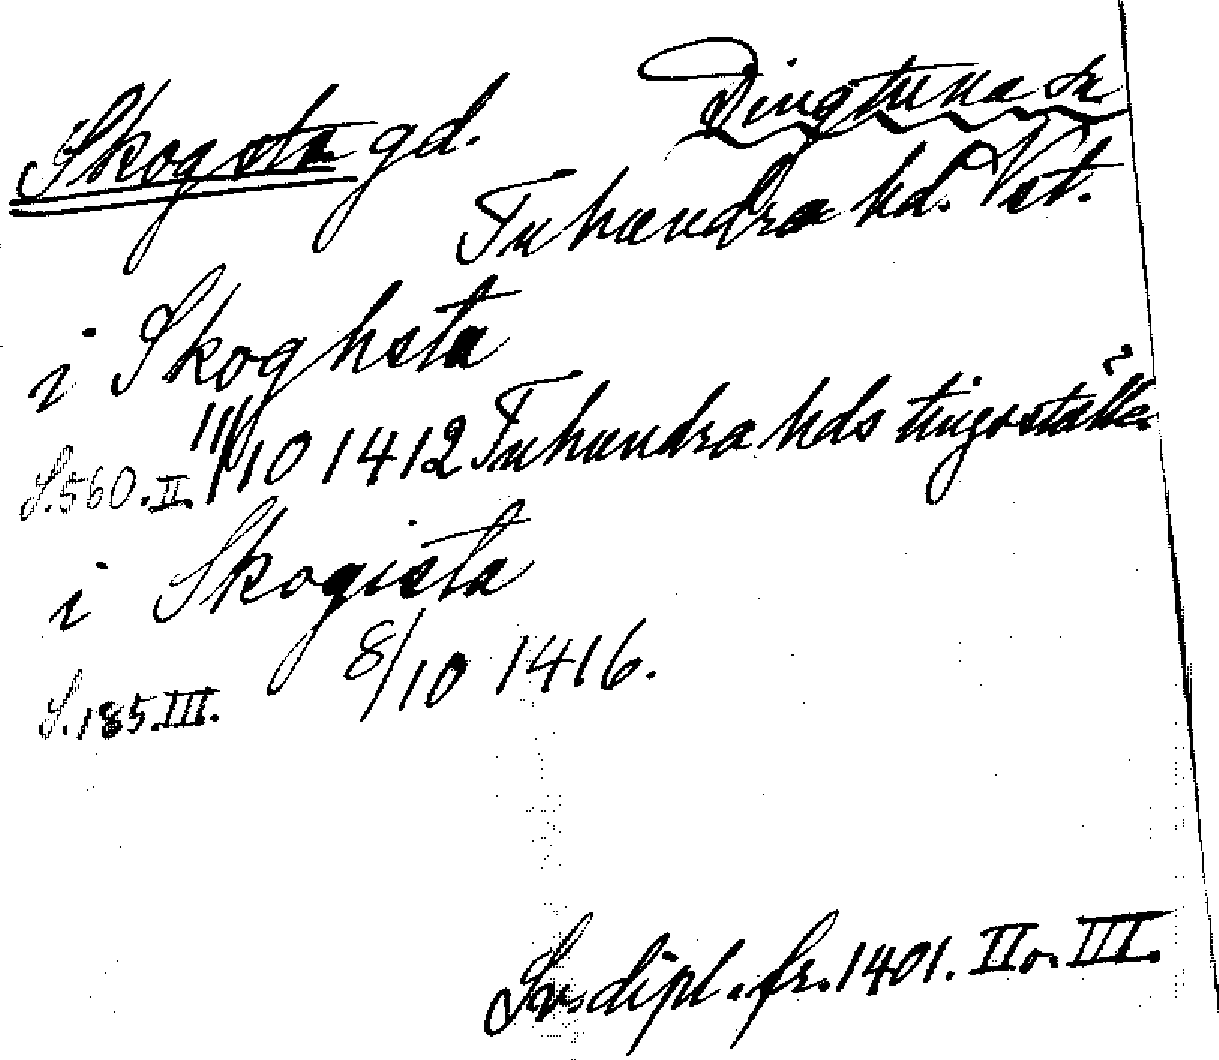 Skogsta gd. Dingtuna sn
Tuhundra hd. Vst.
i Skoghsta
S. 560. II. 11/10 1412 Tuhundra hds tingställe
i Skogista
8/10 1416.
S. 185. III.
Sv. dipl. fr. 1401. II o. III.